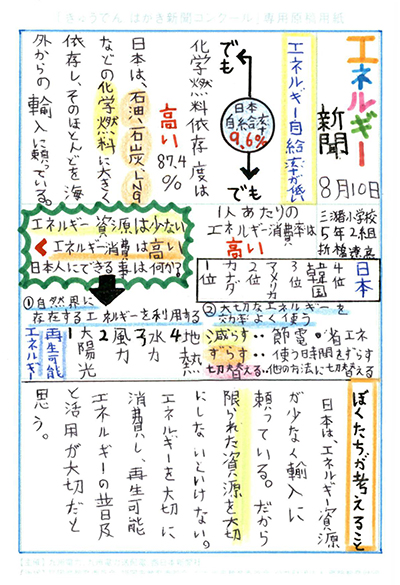 「きゅうでん はがき新聞コンクール」専用原稿用紙
エネルギー
新聞
8月10日
三潴小学校
5年2組
エネルギー自給率が低い
日本
自給率
9.6%
でも
でも
化学燃料依存度は
高い
87.4
%
日本は、石油、石炭、LNG
などの化学燃料に大きく
依存し、そのほとんどを海
外からの輸入に頼っている。
1人あたりの
エネルギー消費率は
高い
1位 カナダ
2位 アメリカ
3位 韓国
4位 日本
エネルギー資源は少ない
エネルギー消費は高い
日本人にできる事は何か?
①自然界に
存在するエネルギーを利用する
再生可能
エネルギー
1太陽光
2風力
3水力
4地熱
②大切なエネルギーを
効率よく使う
減らす・・節電や省エネ
ずらす・・使う時間をずらす
切替える・・他の方法に切替える
ぼくたちが考えること
日本は、エネルギー資源
が少なく輸入に
頼っている。だから
限られた資源を大切
にしないといけない。
エネルギーを大切に
消費し、再生可能
エネルギーの普及
と活用が大切だと
思う。